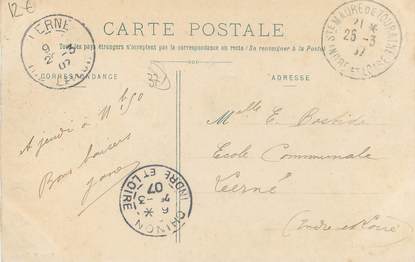 12 €
CARTE POSTALE
Tous les pays étrangers n'acceptent pas la correspondance au recto (Se renseigner à la Poste)
CORRESPONDANCE
ADRESSE
LERNÉ
9 3
07
STE MAURE DE TOURAINE
21 *
26 -3
07
INDRE ET LOIRE
A jeudi à 11 h 50
Bons baisers
Melle E.
Ecole Communale
Lerné
(Indre et Loire)
CHINON
*
-3
07
INDRE ET LOIRE